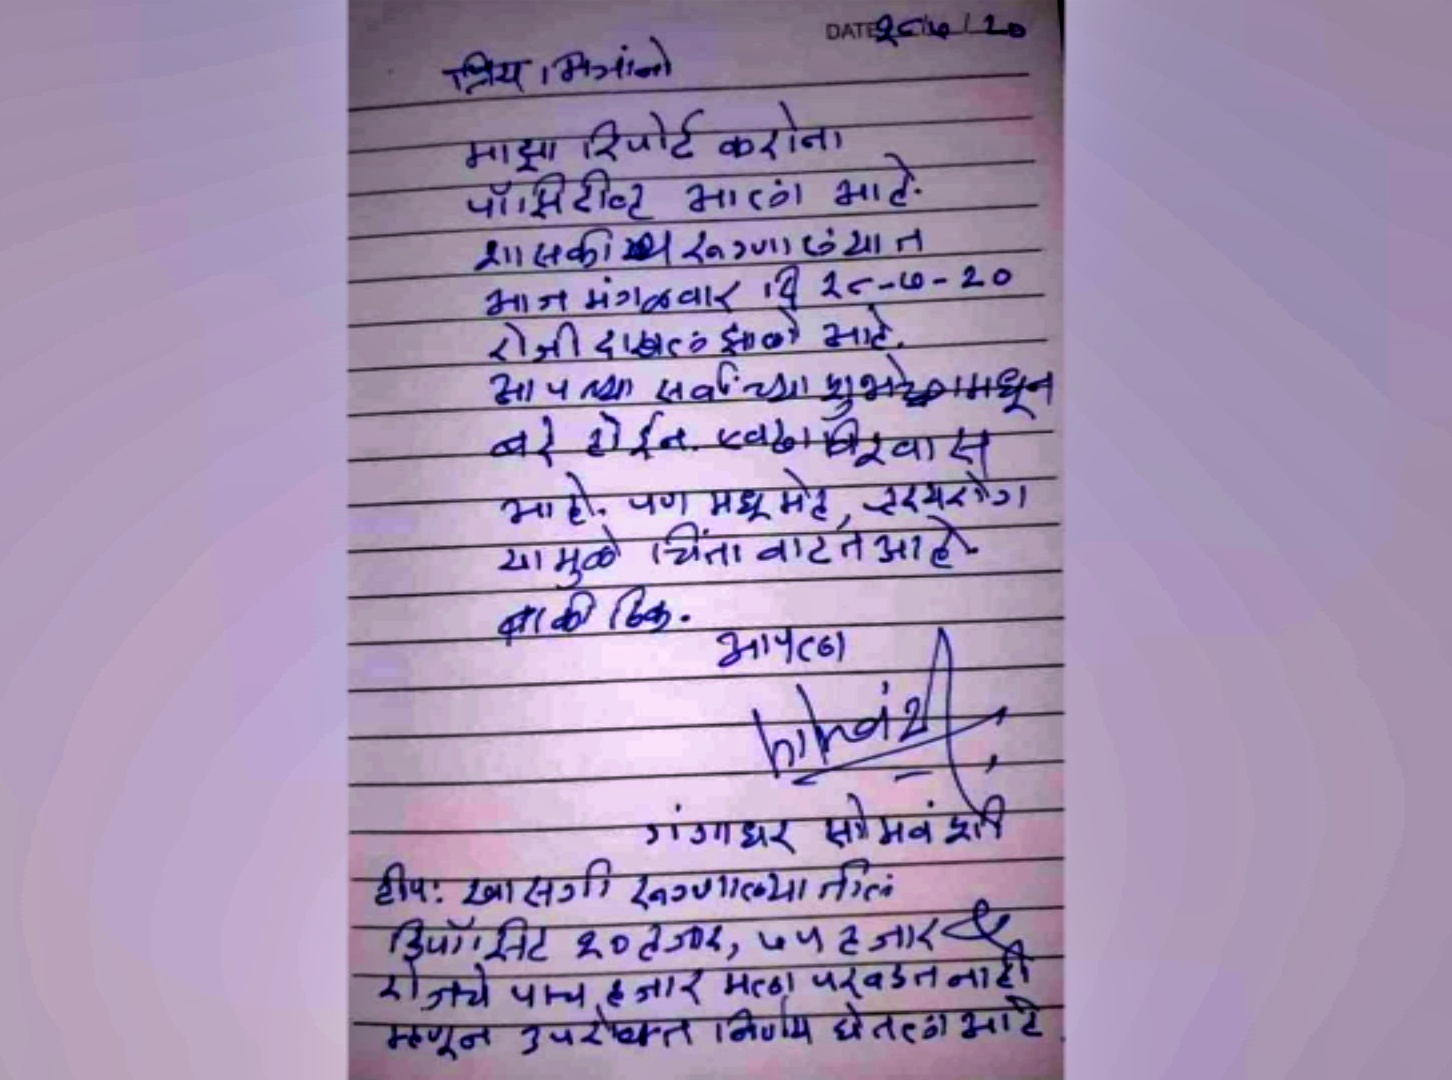 DATE २८/७/२०
प्रिय मित्रांनो
माझा रिपोर्ट करोना
पॉझिटीव्ह आला आहे.
शासकीय रुग्णालयात
आज मंगळवार दि २८-७-२०
रोजी दाखल झालो आहे.
आपल्या सर्वांच्या शुभेच्छामधून
बरे होईन. एवढा विश्वास
आहे. पण मधूमेह, हृदयरोग
यामुळे चिंता वाटते आहे.
बाकी ठिक.
आपला
गंगाधर सोमवंशी
टीप: खासगी रुग्णालयातील
डिपॉझिट ५० हजार, ७५ हजार
रोजचे पाच हजार मला परवडत नाही
म्हणून उपरोक्त निर्णय घेतला आहे.